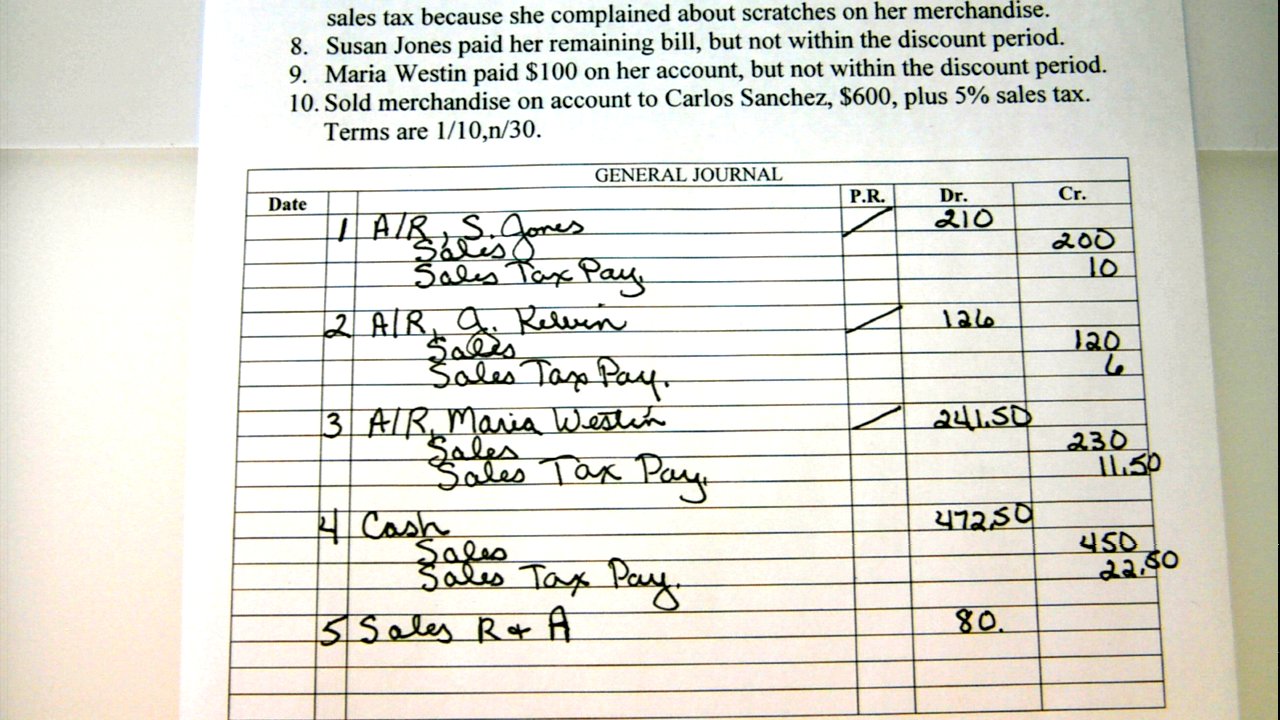 sales tax because she complained about scratches on her merchandise.
8. Susan Jones paid her remaining bill, but not within the discount period.
9. Maria Westin paid $100 on her account, but not within the discount period.
10. Sold merchandise on account to Carlos Sanchez, $600, plus 5% sales tax.
Terms are 1/10,n/30.
GENERAL JOURNAL
Date P.R. Dr. Cr.
1 A/R, S. Jones 210
Sales 200
Sales Tax Pay. 10
2 A/R, J. Kelvin 126
Sales 120
Sales Tax Pay. 6
3 A/R, Maria Westin 241.50
Sales 230
Sales Tax Pay. 11.50
4 Cash 472.50
Sales 450
Sales Tax Pay. 22.50
5 Sales R & A 80.